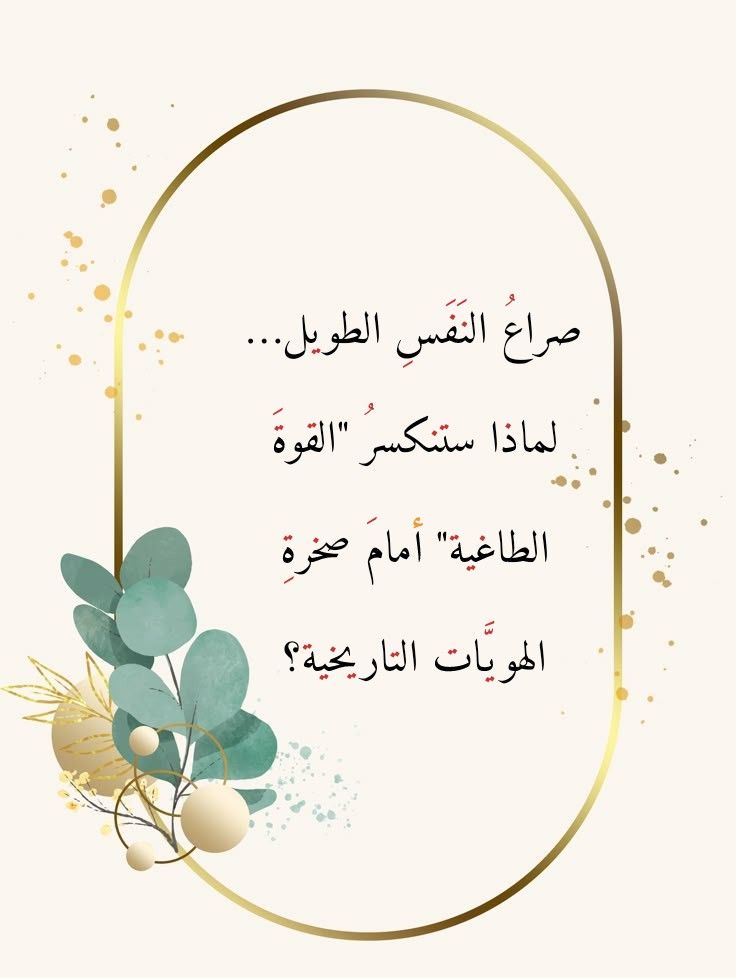 صراعُ النَفَسِ الطويل...
لماذا ستنكسرُ "القوةَ
الطاغية" أمامَ صخرةِ
الهويَّات التاريخية؟